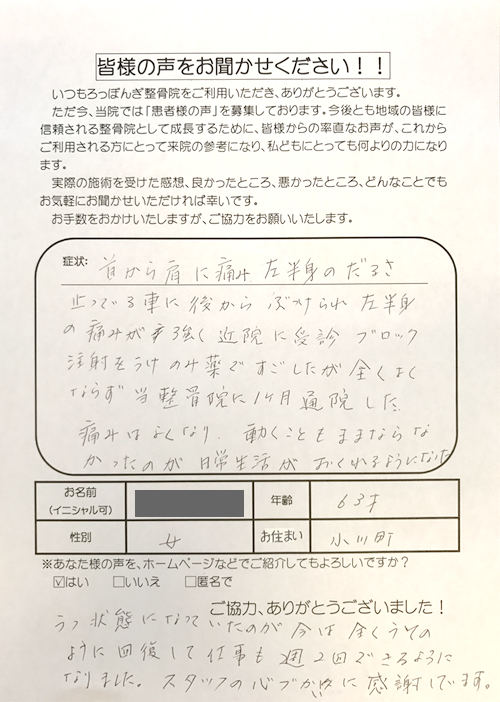 皆様の声をお聞かせください！！
いつもろっぽんぎ整骨院をご利用いただき、ありがとうございます。
ただ今、当院では「患者様の声」を募集しております。今後とも地域の皆様に
信頼される整骨院として成長するために、皆様からの率直なお声が、これから
ご利用される方にとって来院の参考になり、私どもにとっても何よりの力になり
ます。
実際の施術を受けた感想、良かったところ、悪かったところ、どんなことでも
お気軽にお聞かせいただければ幸いです。
お手数をおかけいたしますが、ご協力をお願いいたします。
症状: 首から肩に痛み 左半身のだるさ
止っている車に後から ぶつけられ 左半身
の痛みが 強く 近院に受診 ブロック
注射をうけ のみ薬で すごしたが 全くよく
ならず 当整骨院に1ヶ月通院した
痛みはよくなり、動くこともままならな
かったのが 日常生活が おくれるようになった
お名前 年齢 63才
(イニシャル可)
性別 女 お住まい 小川町
※あなた様の声を、ホームページなどでご紹介してもよろしいですか？
☑はい □いいえ □匿名で
ご協力、ありがとうございました！
うつ状態になっていたのが 今は 全くうその
ように回復して 仕事も 週2回できるように
なりました。スタッフの心づかいに感謝しています。